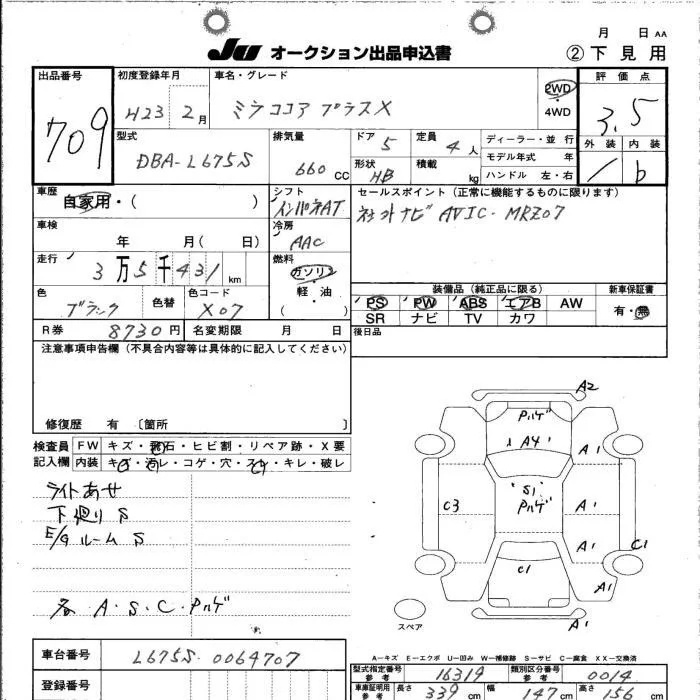 月 日 AA
JU オークション出品申込書 ②下見用
出品番号 初度登録年月 車名・グレード 2WD 評価点
709 H23 2月 ミラココア プラスX 4WD 3.5
型式 排気量 ドア 5 定員 4人 ディーラー・並行 外装 内装
DBA-L675S 660 CC 形状 HB 積載 kg モデル年式 年 ハンドル 左・右 b
車歴 シフト セールスポイント (正常に機能するものに限ります)
自家用・( ) インパネAT 社外ナビ AVIC-MRZ07
車検 冷房
年 月( 日) AAC
走行 燃料
3万5千431km ガソリン 装備品 (純正品に限る) 新車保証書
色 色替 色コード 軽・油 PS PW ABS エアB AW 有・無
ブラック X07 ( ) SR ナビ TV カワ
R券 8730円 名変期限 月 日 後日品
注意事項申告欄 (不具合内容等は具体的に記入してください)
修復歴 有 〔箇所 〕
検査員 FW キズ・飛石・ヒビ割・リペア跡・X要
記入欄 内装 キズ・汚レ・コゲ・穴・スレ・キレ・破レ
ライトあせ
下廻りS
E/GルームS
各 A・S・C・Pハゲ
A2
Pハゲ
A4
A1
S1
Pハゲ
C3
A1
A1
C1
C1
A1
A1
スペア
A-キズ E-エクボ U-凹み W-補修跡 S-サビ C-腐食 XX-交換済
車台番号 L675S-0064707 型式指定番号 参考 16319 類別区分番号 参考 0014
登録番号 車庫証明用 参考 長さ 339cm 幅 147cm 高さ 156cm